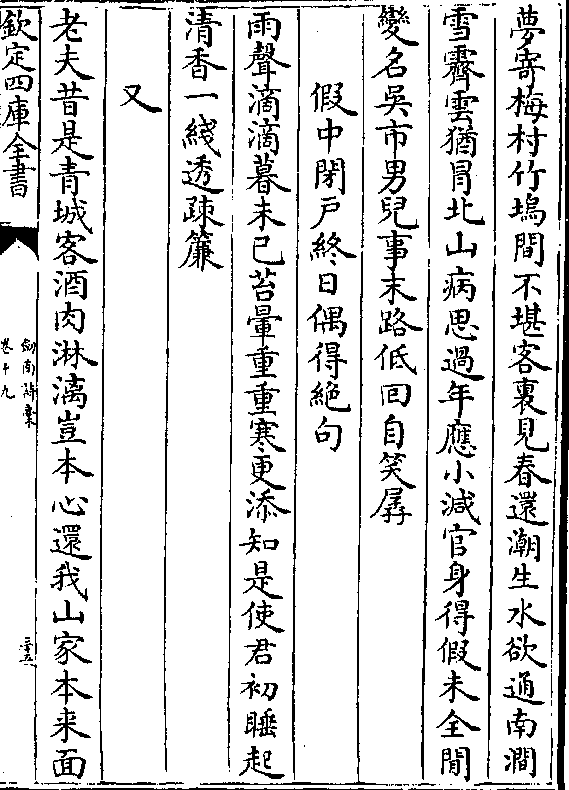 夢寄梅村竹塢間不堪客裏見春還潮生水欲通南澗
雪霽雲猶冒北山病思過年應小減官身得假未全閒
變名吳市男兒事末路低回自笑孱
假中閉戸終日偶得絶句
雨聲滴滴暮未已苔暈重重寒更添知是使君初睡起
清香一綫透疎簾
又
老夫昔是青城客酒肉淋漓豈本心還我山家本来面
欽定四庫全書
劒南詩藁
卷十九
三五